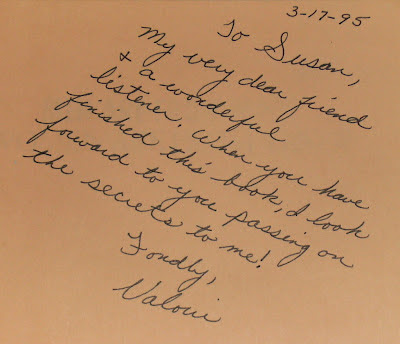 3-17-95
To Susan,
My very dear friend
& a wonderful
listener. When you have
finished this book, I look
foward to you passing on
the secrets to me!
Fondly,
Valorie